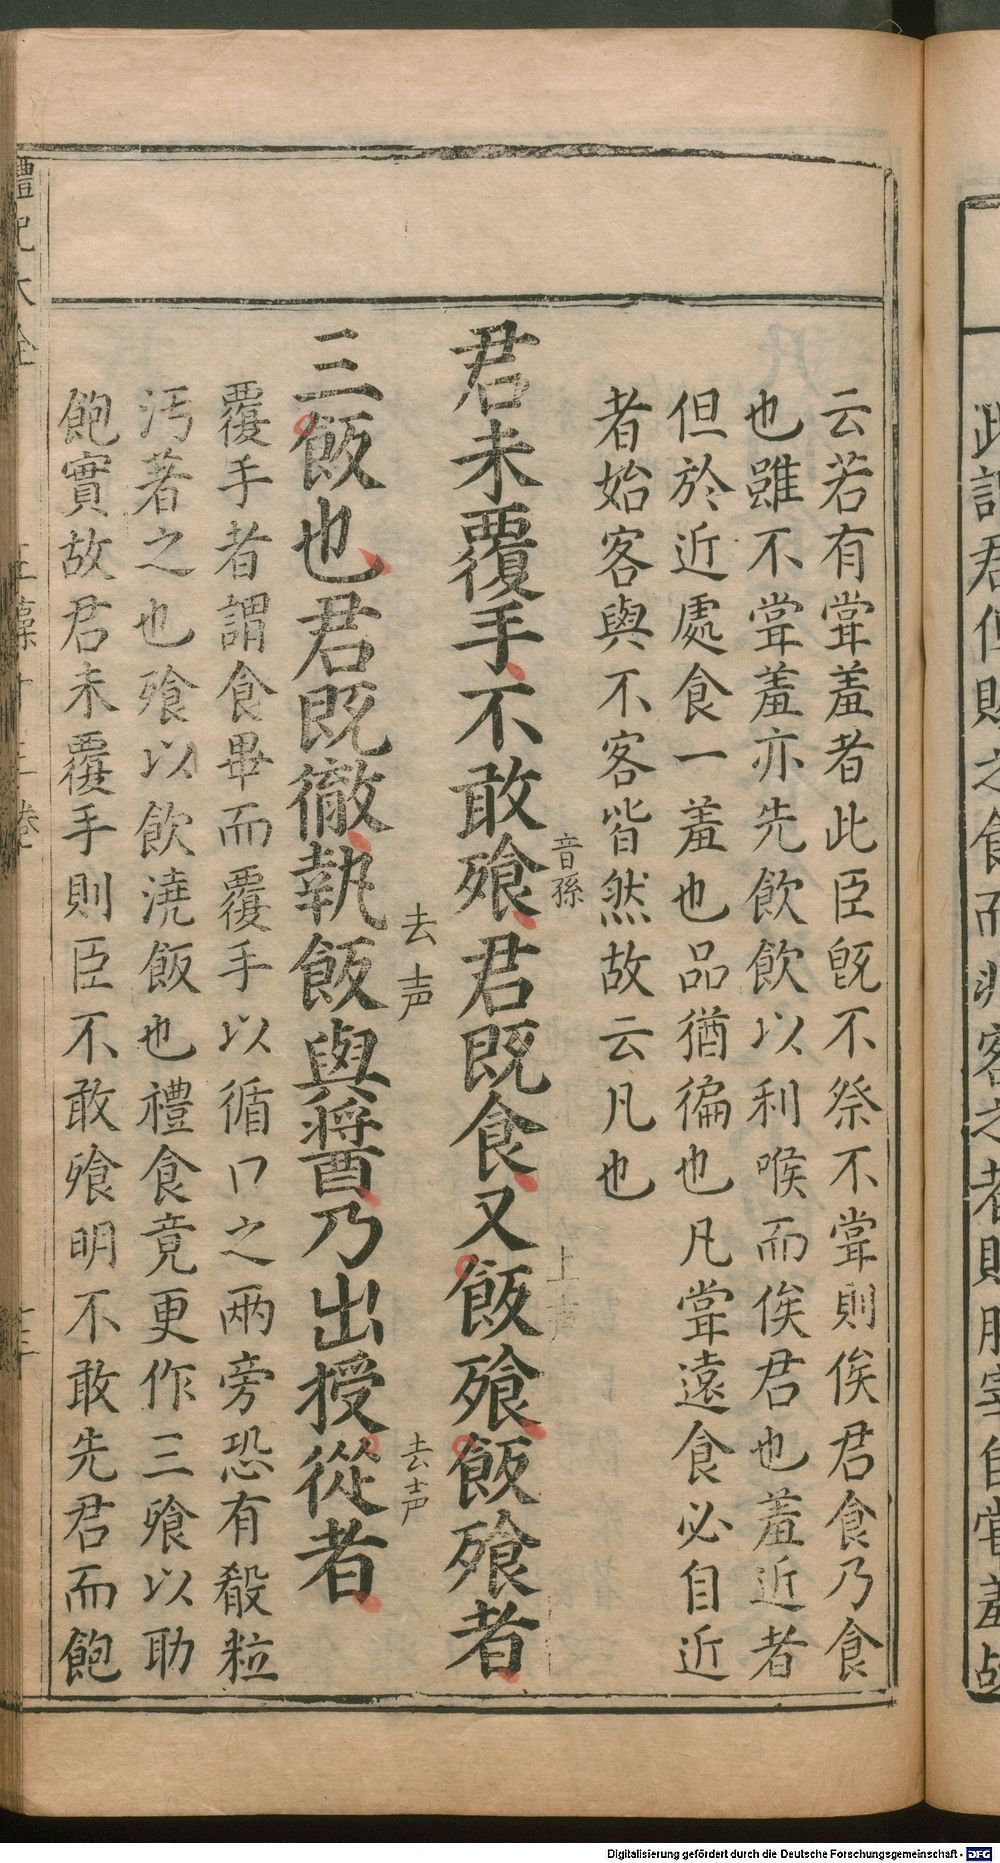 云若有甞羞者此臣旣不祭不甞則俟君食乃食
也雖不甞羞亦先飲飲以利喉而俟君也羞近者
但於近處食一羞也品猶徧也凡甞遠食必自近
者始客與不客皆然故云凡也
君未覆手不敢飱音孫君既食又飯上声飱飯飱者
三飯也君既徹執飯去声與醬乃出授從去声者
覆手者謂食畢而覆手以循口之兩旁恐有殽粒
汚著之也飱以飲澆飯也禮食竟更作三飱以助
飽實故君未覆手則臣不敢飱明不敢先君而飽
禮記大全
Digitalisierung gefördert durch die Deutsche Forschungsgemeinschaft - DFG